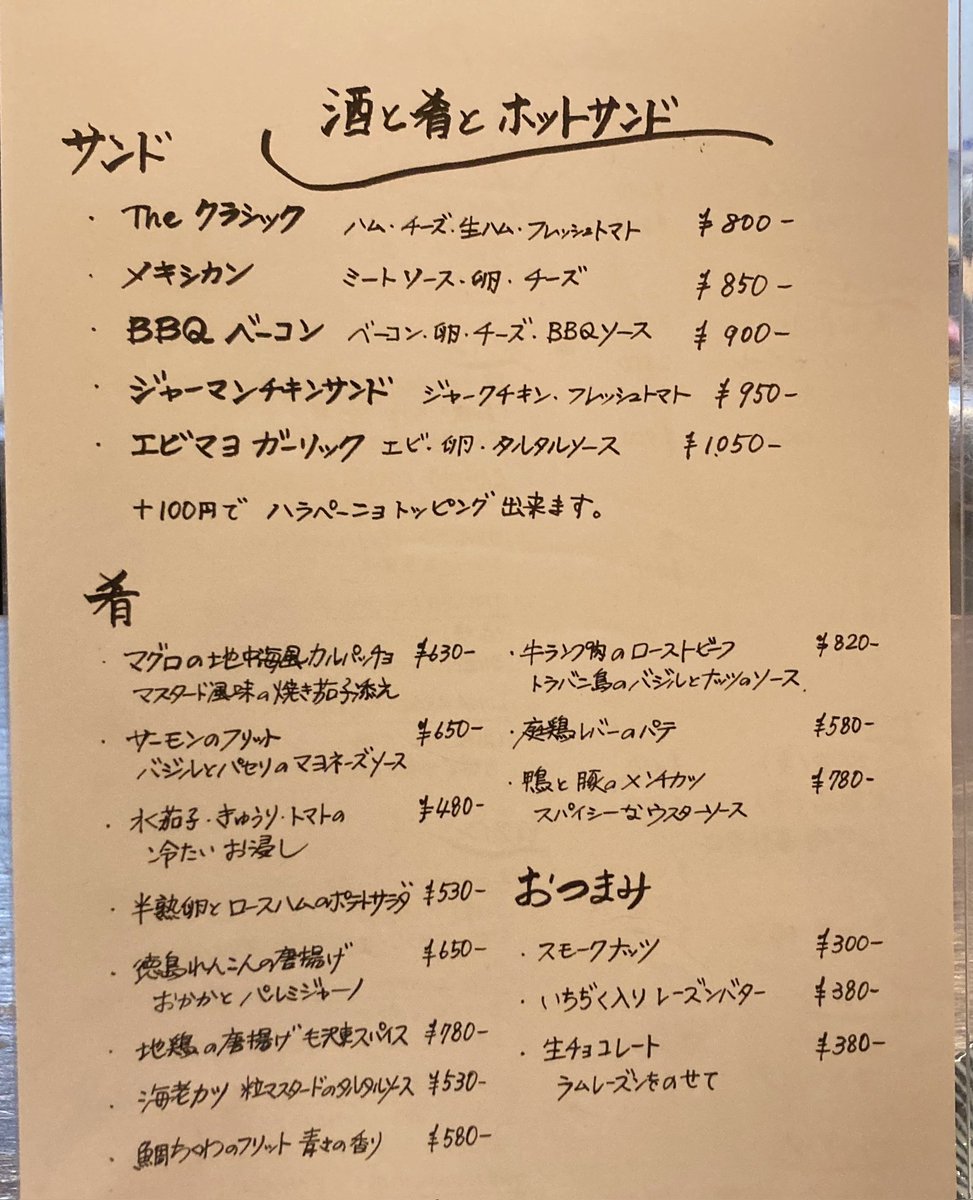 酒と肴とホットサンド
サンド
・The クラシック ハム・チーズ・生ハム・フレッシュトマト ¥800-
・メキシカン ミートソース・卵・チーズ ¥850-
・BBQ ベーコン ベーコン・卵・チーズ・BBQソース ¥900-
・ジャーマンチキンサンド ジャークチキン・フレッシュトマト ¥950-
・エビマヨ ガーリック エビ・卵・タルタルソース ¥1,050-
+100円で ハラペーニョトッピング出来ます。
肴
・マグロの地中海風カルパッチョ ¥630-
マスタード風味の焼き茄子添え
・サーモンのフリット ¥650-
バジルとパセリのマヨネーズソース
・水茄子・きゅうり・トマトの ¥480-
冷たいお浸し
・半熟卵とロースハムのポテトサラダ ¥530-
・徳島れんこんの唐揚げ ¥650-
おかかとパルミジャーノ
・地鶏の唐揚げ 毛沢東スパイス ¥780-
・海老カツ 粒マスタードのタルタルソース ¥530-
・鯛ちくわのフリット 青さの香り ¥580-
・牛ランプ肉のローストビーフ ¥820-
トラパニ島のバジルとナッツのソース
・庭鶏レバーのパテ ¥580-
・鴨と豚のメンチカツ ¥780-
スパイシーなウスターソース
おつまみ
・スモークナッツ ¥300-
・いちぢく入りレーズンバター ¥380-
・生チョコレート ¥380-
ラムレーズンをのせて